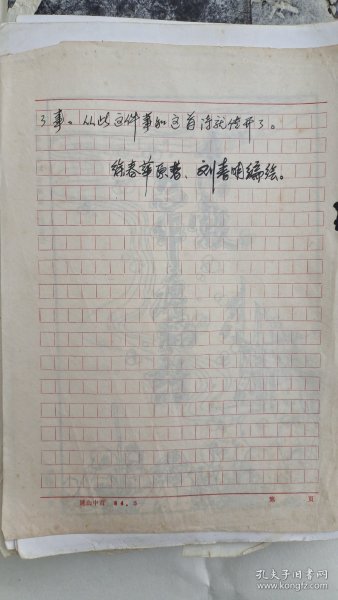 了事。从此这件事和这首诗就传开了。
徐春华原著、刘春明编绘。
84.5
第 页
孔夫子旧书网